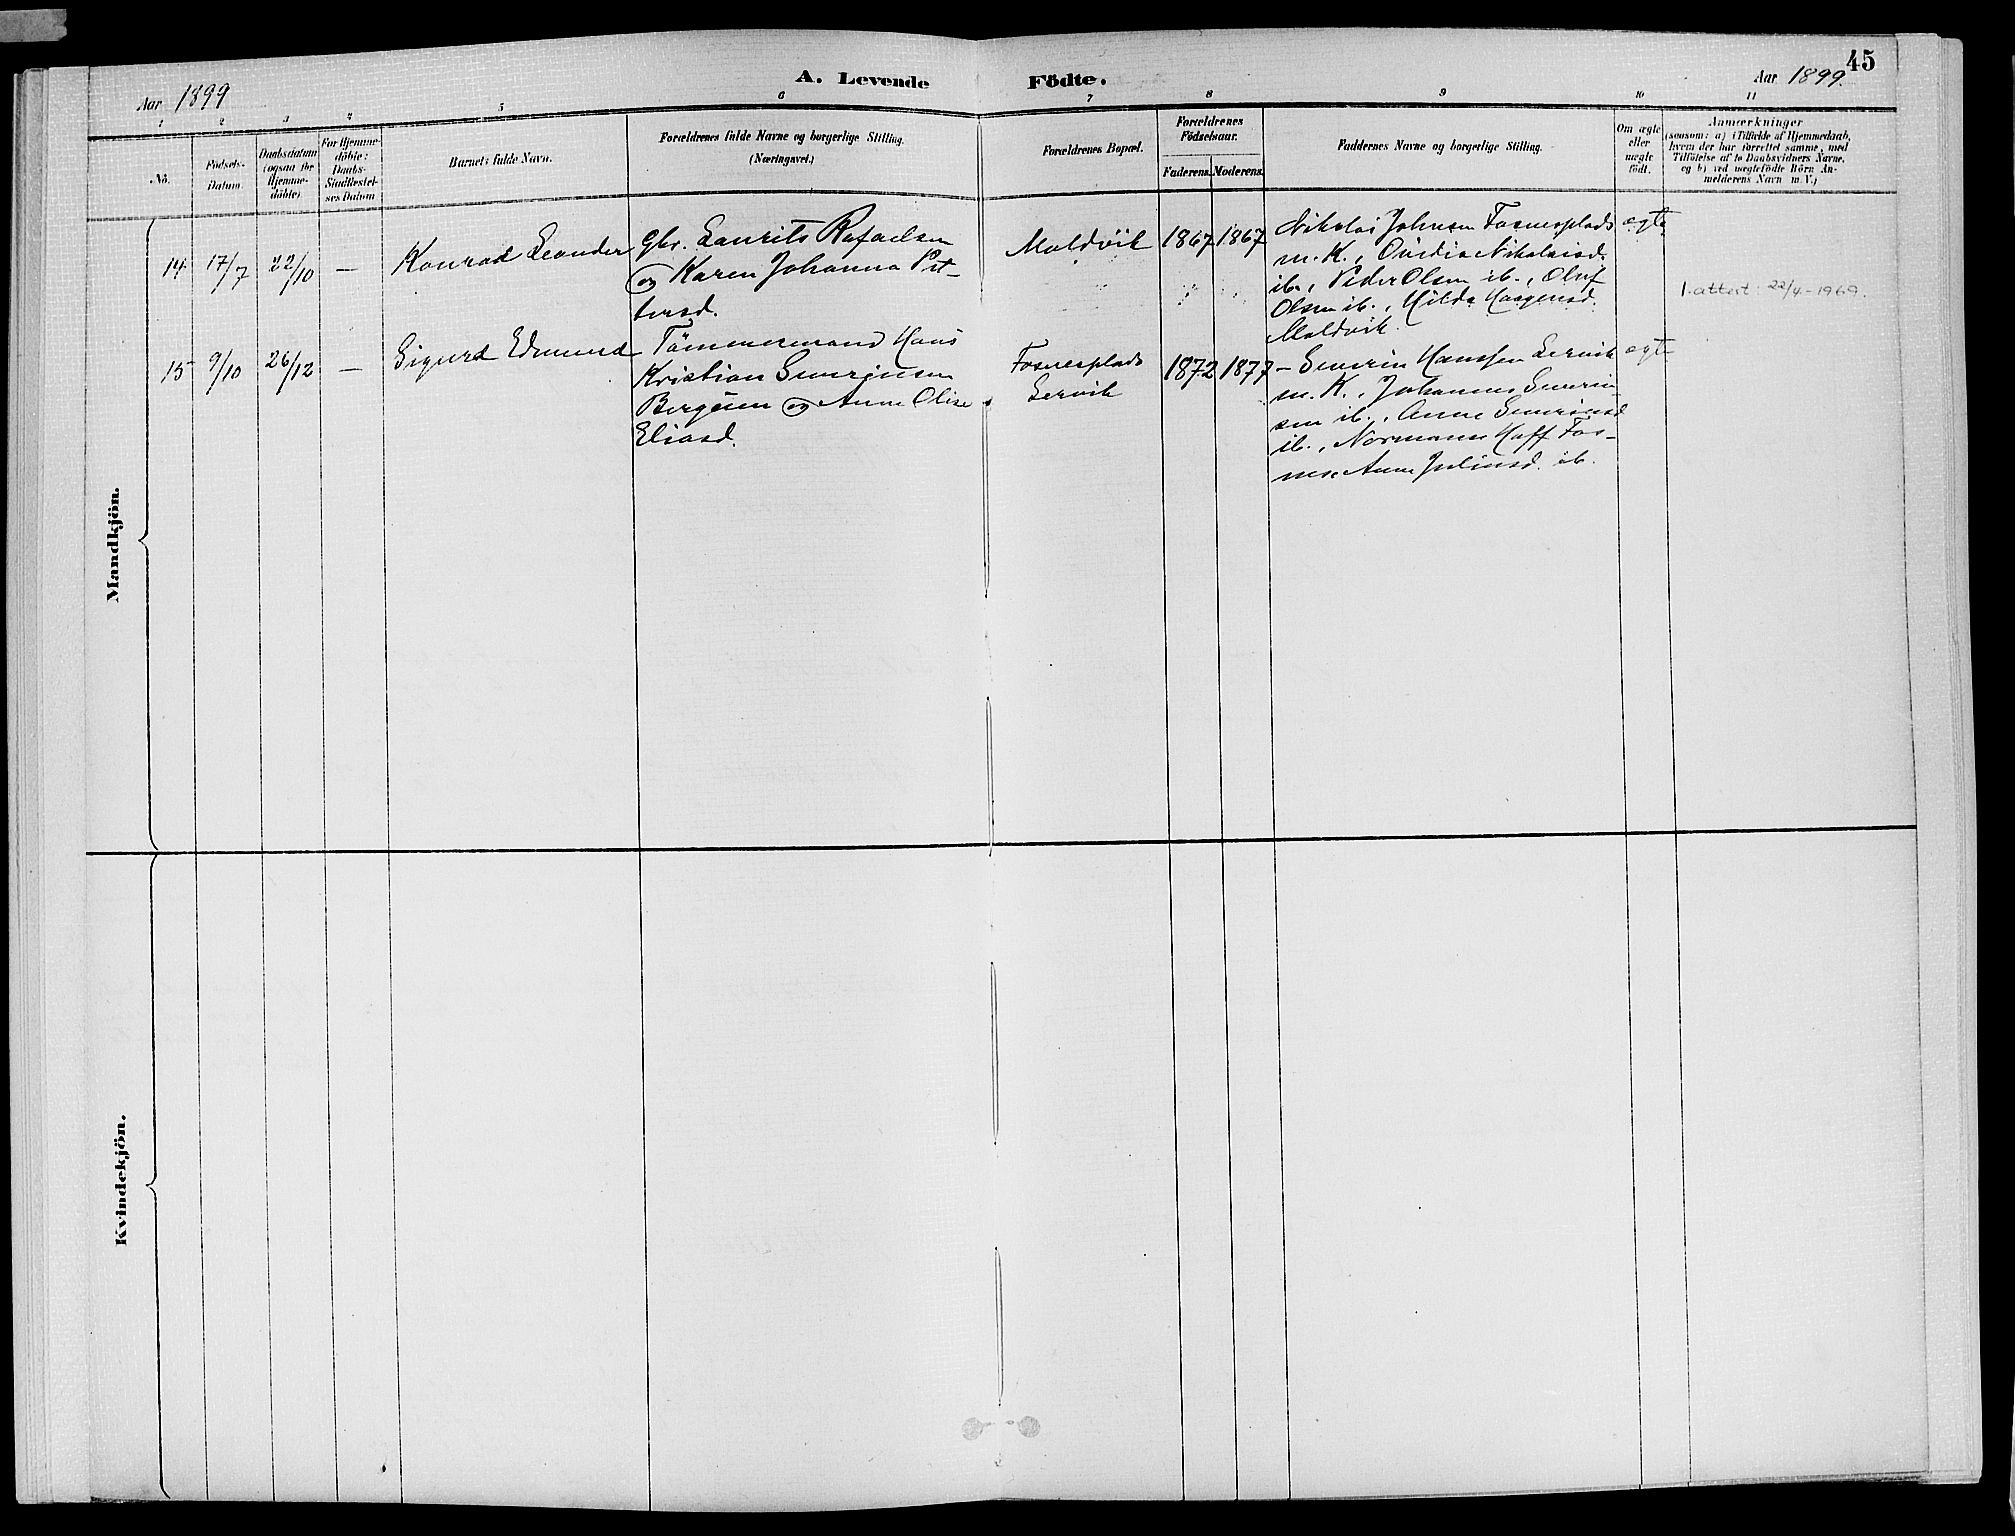 45
A. Levende Födte.
Aar 1899
Aar 1899.
1 2 3 4 5 6 7 8 9 10 11
No.
Födsels-
Datum.
Daabsdatum
(ogsaa for
Hjemme-
döbte)
For Hjemme-
döbte:
Daabs-
Stadfæstel-
ses Datum
Barnets fulde Navn.
Forældrenes fulde Navne og borgerlige Stilling.
(Næringsvei.)
Forældrenes Bopæl.
Forældrenes
Födselsaar.
Faderens. Moderens.
Faddernes Navne og borgerlige Stilling.
Om ægte
eller
uægte
födt.
Anmærkninger
(saasom: a) i Tilfælde af Hjemmedaab,
hvem der har forrettet samme, med
Tilföielse af to Daabsvidners Navne,
og b) ved uægtefödte Börn An-
melderens Navn m. V.)
Mandkjön.
14 17/7 22/10 — Konrad Leander
Gbr. Laurits Rafaelsen
og Karen Johanna Pet-
tersd.
Moldvik
1867 1867
Nikolai Johnsen Fosnesplads
m. K., Ovidia Nikolaisd.
ib., Peder Olsen ib., Oluf
Olsen ib., Hilda Haagensd.
Moldvik.
ægte
1. attest: 22/4-1969.
15 9/10 26/12 — Sigurd Edmund
Tömmermand Hans
Kristian Severinsen
Bergsen og Anne Olise
Eliasd.
Fosnesplads
Lervik
1872 1877
— Severin Hanssen Lervik
m. K., Johannes Severin-
sen ib., Anne Severinsd
ib., Normann Hoff Fos-
nes, Anne Juliusd. ib.
ægte
Kvindekjön.